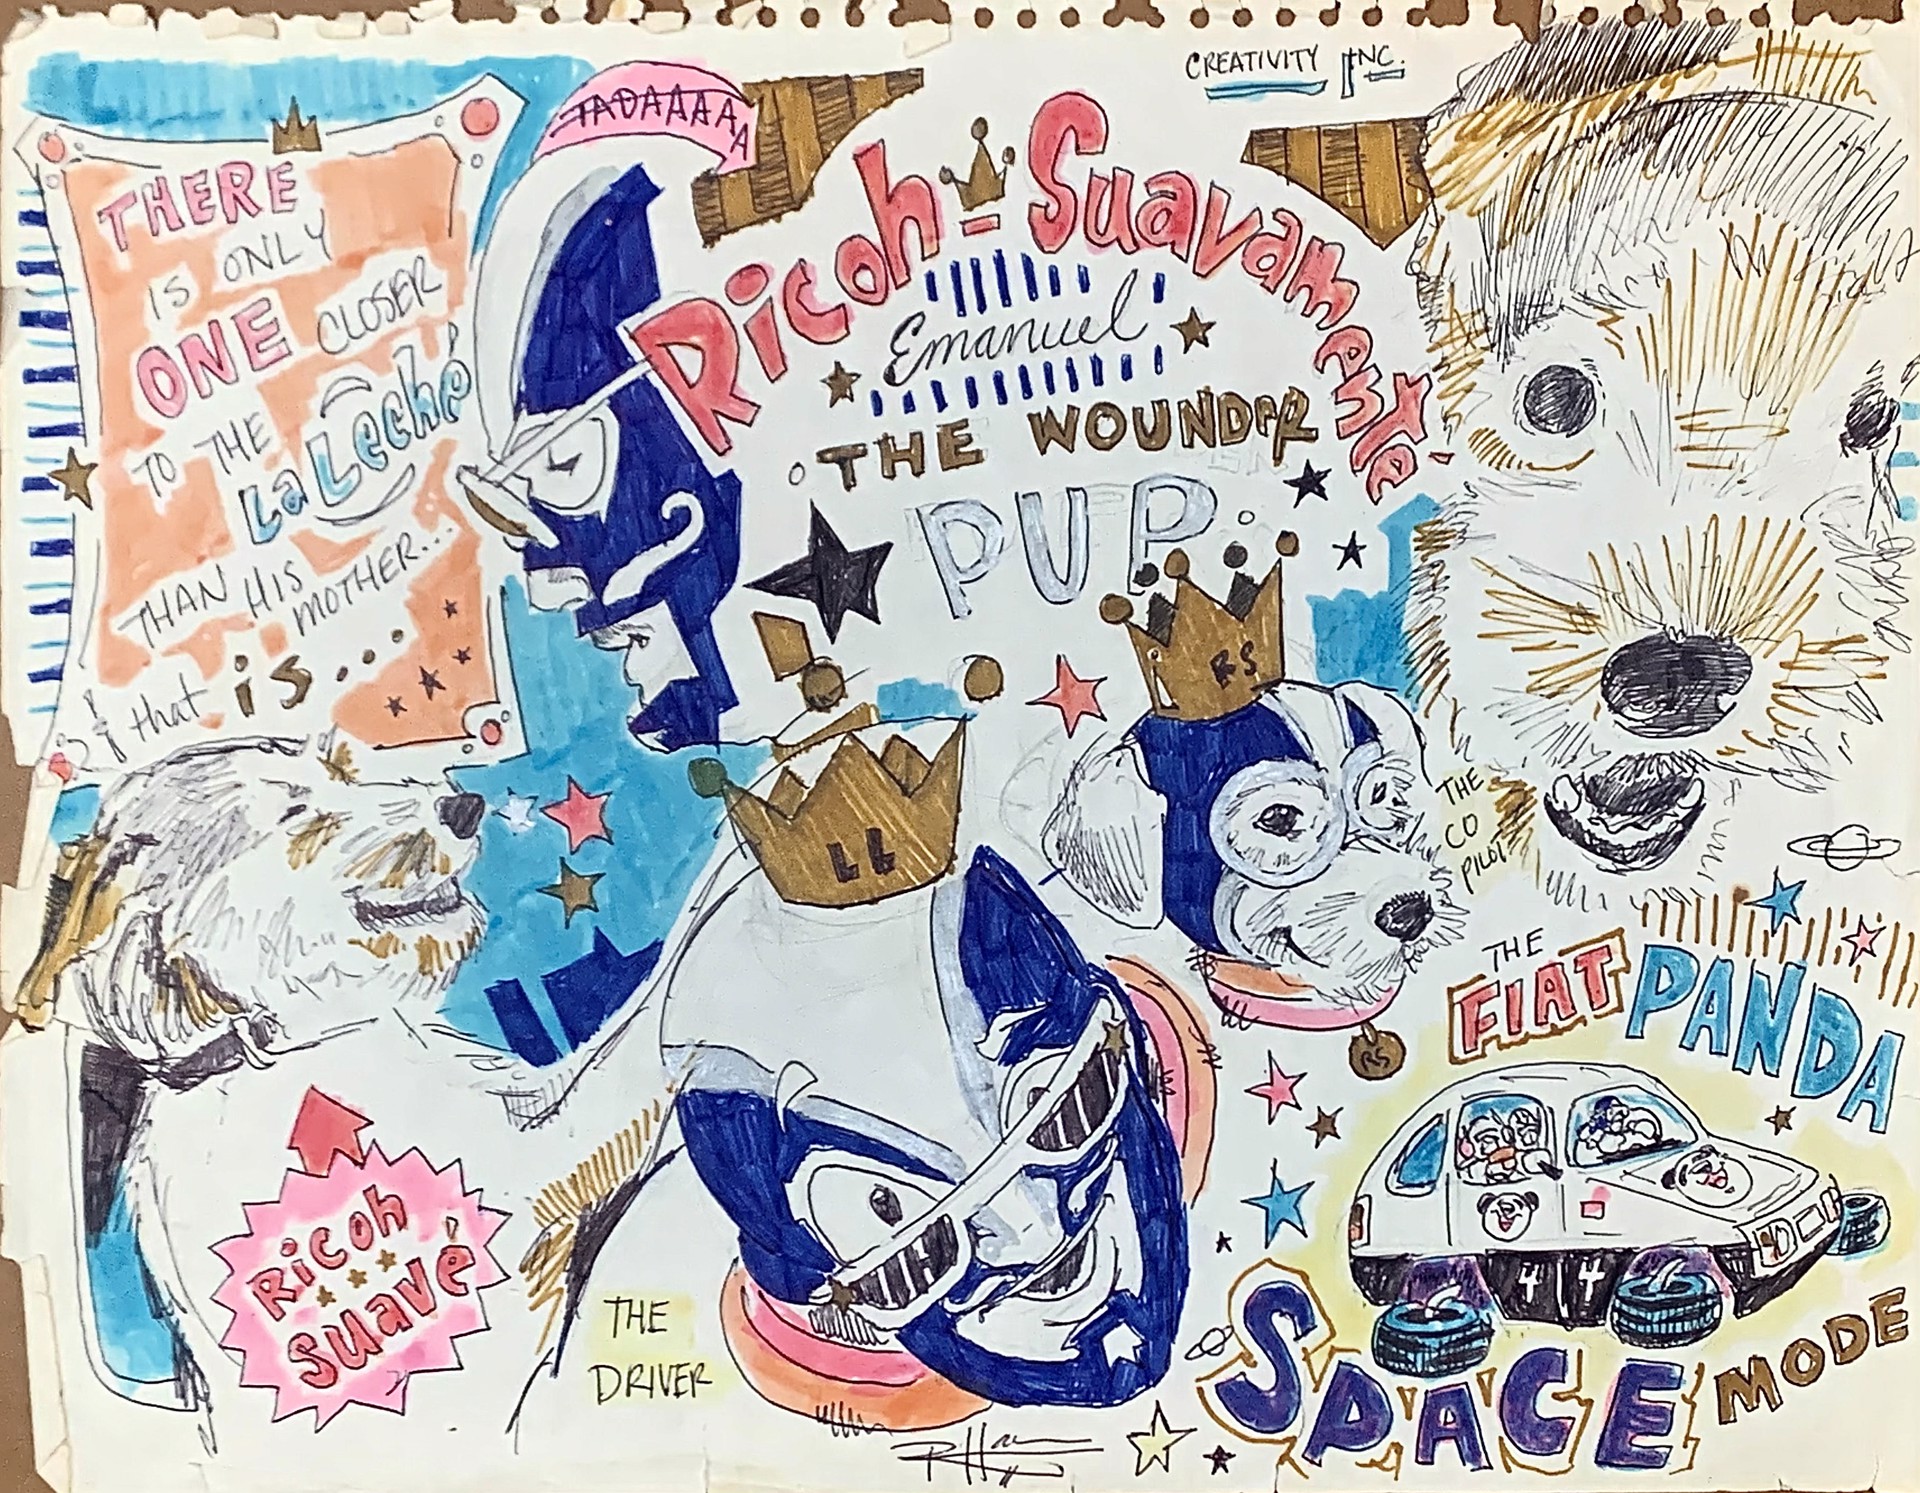 CREATIVITY INC.
TADAAAAAA
THERE
IS ONLY
ONE CLOSER
TO THE
La Leché
THAN HIS
MOTHER...
that is...
Ricoh-Suavamenté
Emanuel
THE WOUNDER
PUP
RS
LL
THE
CO
PILOT
RS
THE
FIAT PANDA
4 4
SPACE MODE
Ricoh
Suavé
THE
DRIVER